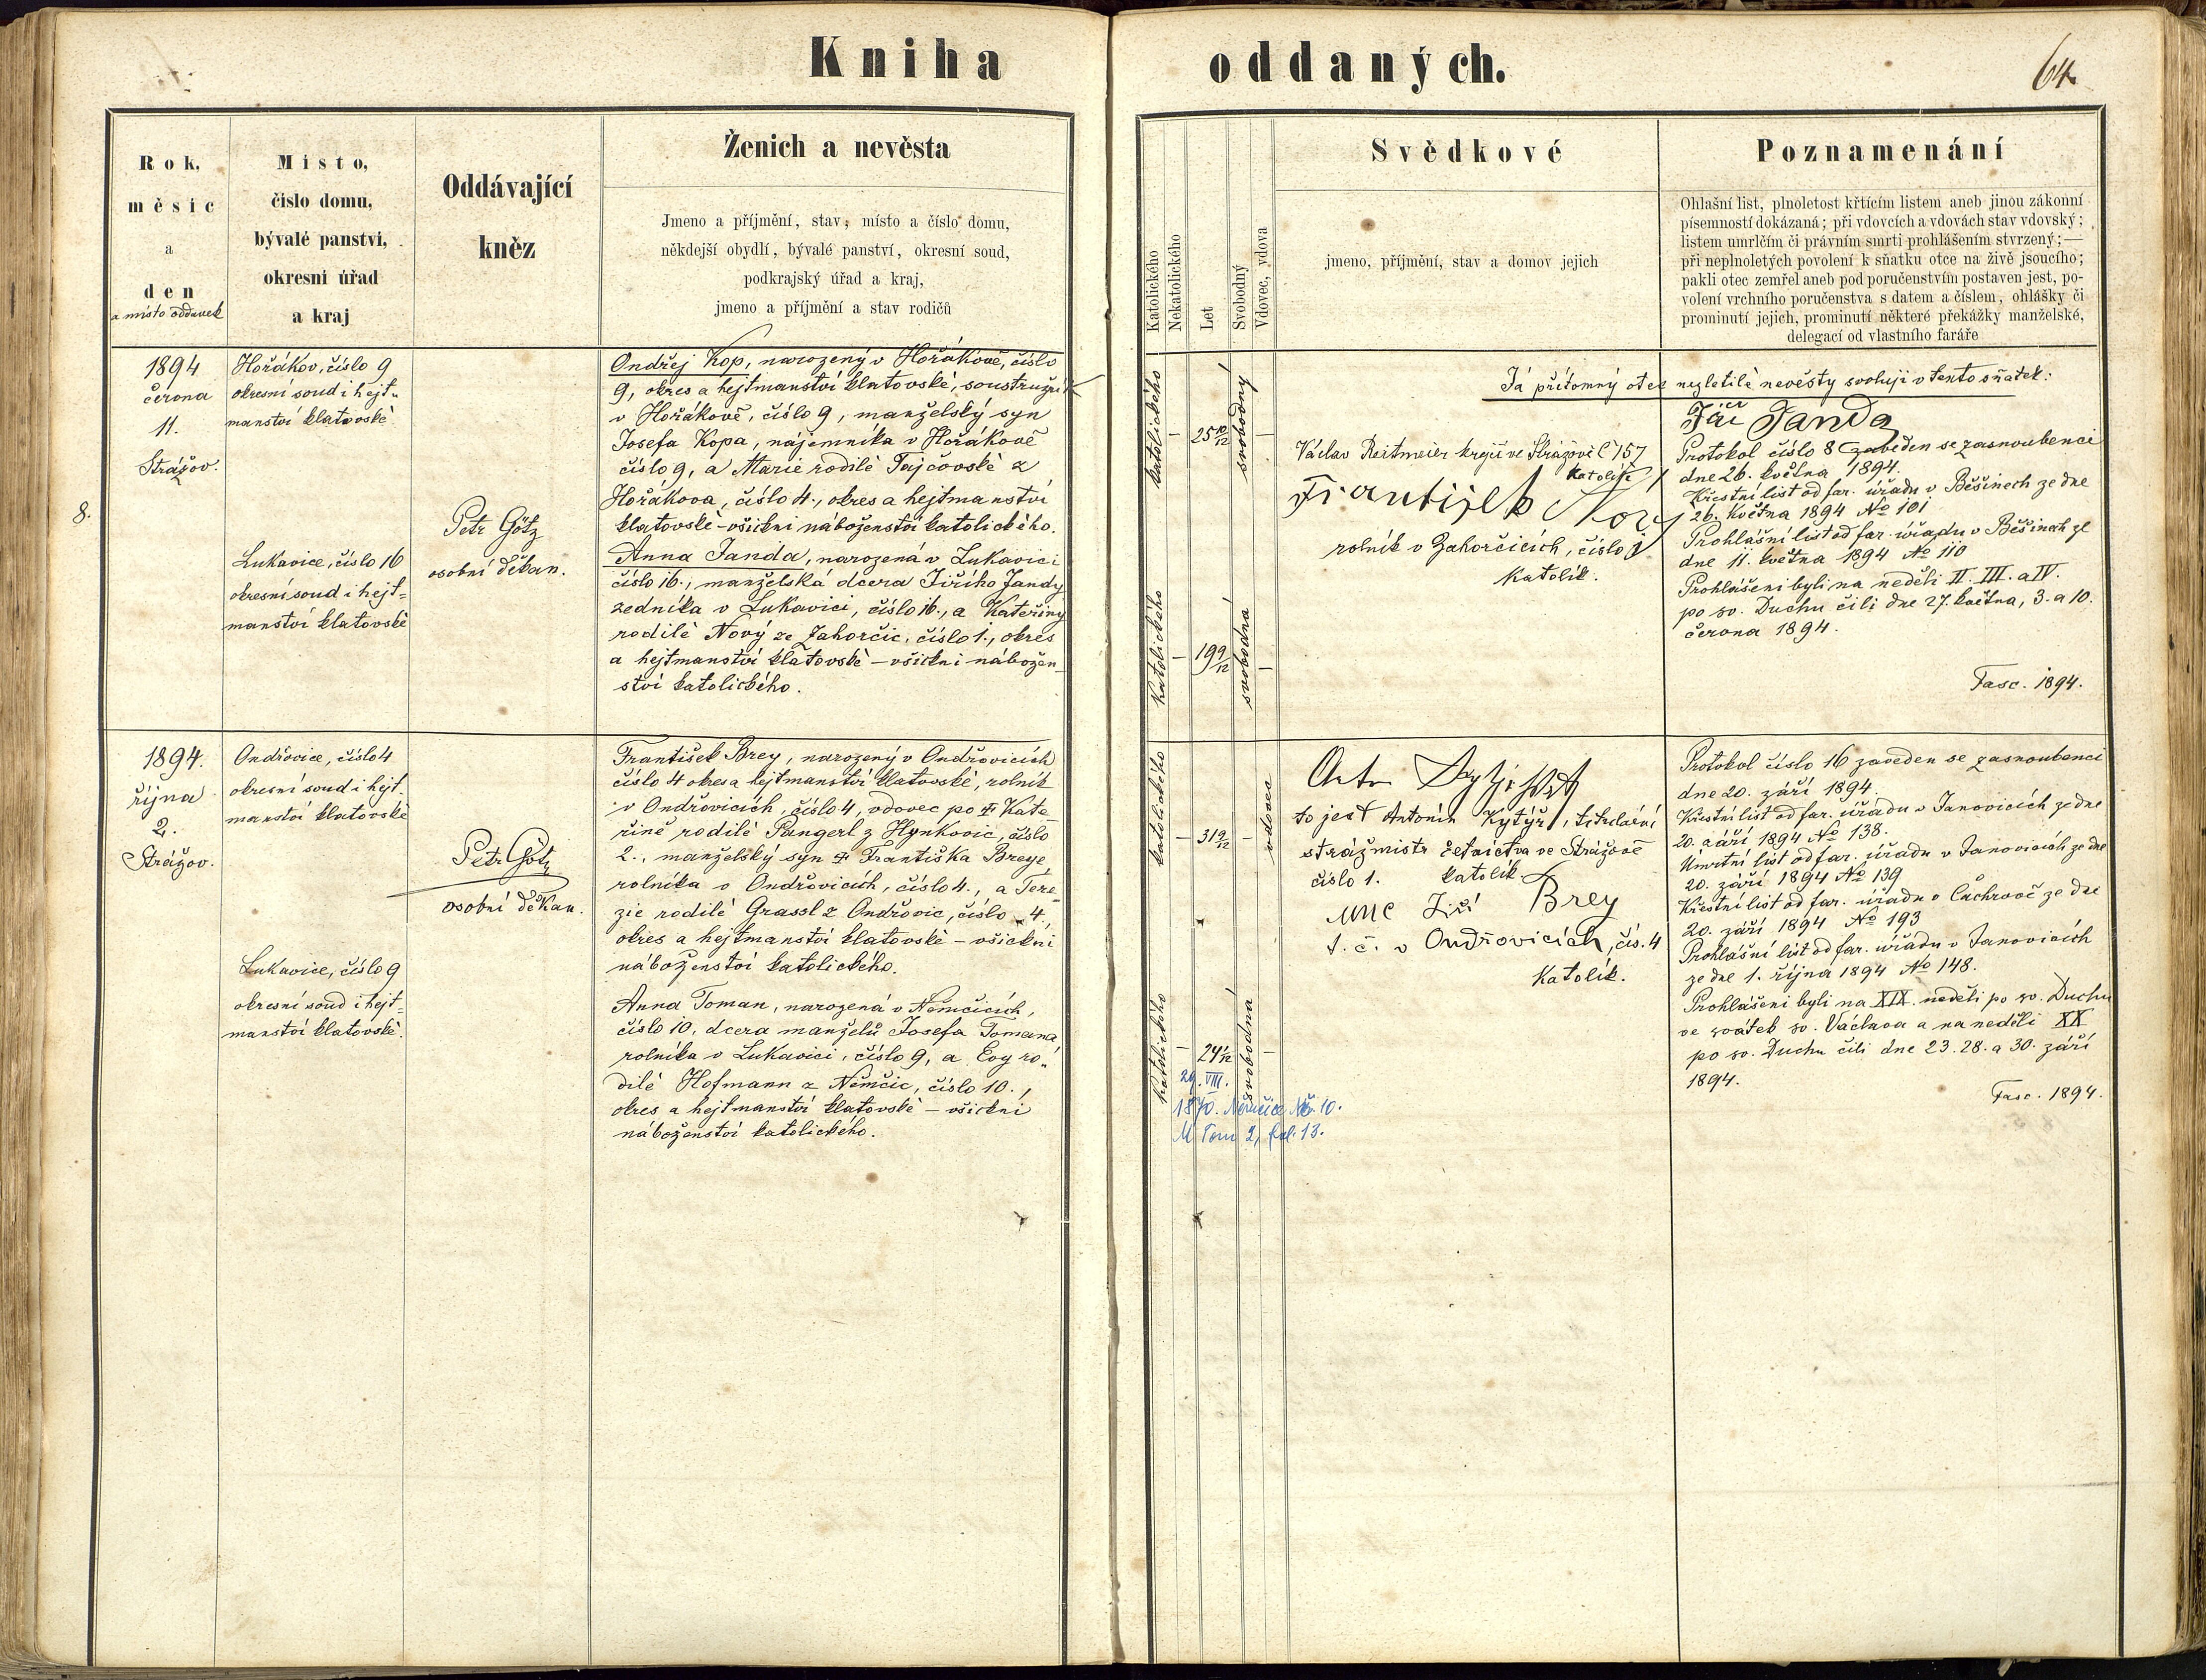 Kniha oddaných.
64
Rok,
měsíc
a
den
a místo oddavek
Místo,
číslo domu,
bývalé panství,
okresní úřad
a kraj
Oddávající
kněz
Ženich a nevěsta
Jmeno a příjmění, stav, místo a číslo domu,
někdejší obydlí, bývalé panství, okresní soud,
podkrajský úřad a kraj,
jmeno a příjmění a stav rodičů
Katolického
Nekatolického
Let
Svobodný
Vdovec, vdova
Svědkové
jmeno, příjmění, stav a domov jejich
Poznamenání
Ohlašní list, plnoletost křtícím listem aneb jinou zákonní
písemností dokázaná; při vdovcích a vdovách stav vdovský;
listem umrlčím či právním smrti prohlášením stvrzený;—
při neplnoletých povolení k sňatku otce na živě jsoucího;
pakli otec zemřel aneb pod poručenstvím postaven jest, po-
volení vrchního poručenstva s datem a číslem, ohlášky či
prominutí jejich, prominutí některé překážky manželské,
delegací od vlastního faráře
8.
1894
června
11.
Strážov.
Hořákov, číslo 9
okresní soud i hejt-
manství klatovské
Lukavice, číslo 16
okresní soud i hejt=
manství klatovské
Petr Götz
osobní děkan.
Ondřej Kop, narozený v Hořákově, číslo
9, okres a hejtmanství klatovské, soustružník
v Hořákově, číslo 9, manželský syn
Josefa Kopa, nájemníka v Hořákově
číslo 9, a Marie rodilé Tajčovské z
Hořákova, číslo 4., okres a hejtmanství
klatovské – všickni náboženství katolického.
Anna Janda, narozená v Lukavici
číslo 16., manželská dcera Jiřího Jandy
zedníka v Lukavici, číslo 16., a Kateřiny
rodilé Nový ze Zahorčic, číslo 1., okres
a hejtmanství klatovské – všickni nábožen-
ství katolického.
katolického
–
25 10/12
svobodný
–
katolického
–
19 9/12
svobodná
–
Václav Reitmeier krejčí ve Strážově č 157
katolík
František Nový
rolník v Zahorčicích, číslo 1
Katolík.
Já přítomný otec nezletilé nevěsty svoluji v tento sňatek:
Jiří Janda
Protokol číslo 8 zaveden se zasnoubenci
dne 26. května 1894.
Křestní list od far. úřadu v Běšinech ze dne
26. května 1894 No 101
Prohlášní list od far. úřadu v Běšinech ze
dne 11. května 1894 No 110
Prohlášeni byli na neděli II. III. a IV.
po sv. Duchu čili dne 27. května, 3. a 10.
června 1894.
Fasc. 1894.
1894.
října
2.
Strážov.
Ondřovice, číslo 4
okresní soud i hejt-
manství klatovské
Lukavice, číslo 9
okresní soud i hejt=
manství klatovské.
Petr Götz
osobní děkan.
František Brey, narozený v Ondřovicích
číslo 4 okres a hejtmanství klatovské, rolník
v Ondřovicích, číslo 4, vdovec po † Kate-
řině rodilé Pangerl z Hynkovic, číslo
2., manželský syn † Františka Breye,
rolníka v Ondřovicích, číslo 4., a Tere-
zie rodilé Grassl z Ondřovic, číslo 4.,
okres a hejtmanství klatovské – všickni
náboženství katolického.
Anna Toman, narozená v Němčicích,
číslo 10, dcera manželů Josefa Tomana,
rolníka v Lukavici, číslo 9, a Evy ro-
dilé Hofmann z Němčic, číslo 10.,
okres a hejtmanství klatovské – všickni
náboženství katolického.
katolického
–
31 9/12
–
vdovec
katolického
–
24 1/12
svobodná
–
29. VIII.
1870. Němčice No. 10.
M Tom 2, fol. 13.
to jest Antonín Kytýř, titulární
strážmistr četnictva ve Strážově
číslo 1. katolík.
Jiří Brey
t. č. v Ondřovicích, čís. 4
Katolík.
Protokol číslo 16 zaveden se zasnoubenci
dne 20. září 1894.
Křestní list od far. úřadu v Janovicích ze dne
20. září 1894 No 138.
Úmrtní list od far. úřadu v Janovicích ze dne
20. září 1894 No 139
Křestní list od far. úřadu v Čachrově ze dne
20. září 1894 No 193
Prohlášní list od far. úřadu v Janovicích
ze dne 1. října 1894 No 148.
Prohlášeni byli na XIX. neděli po sv. Duchu
ve svátek sv. Václava a na neděli XX
po sv. Duchu čili dne 23. 28. a 30. září
1894.
Fasc. 1894.